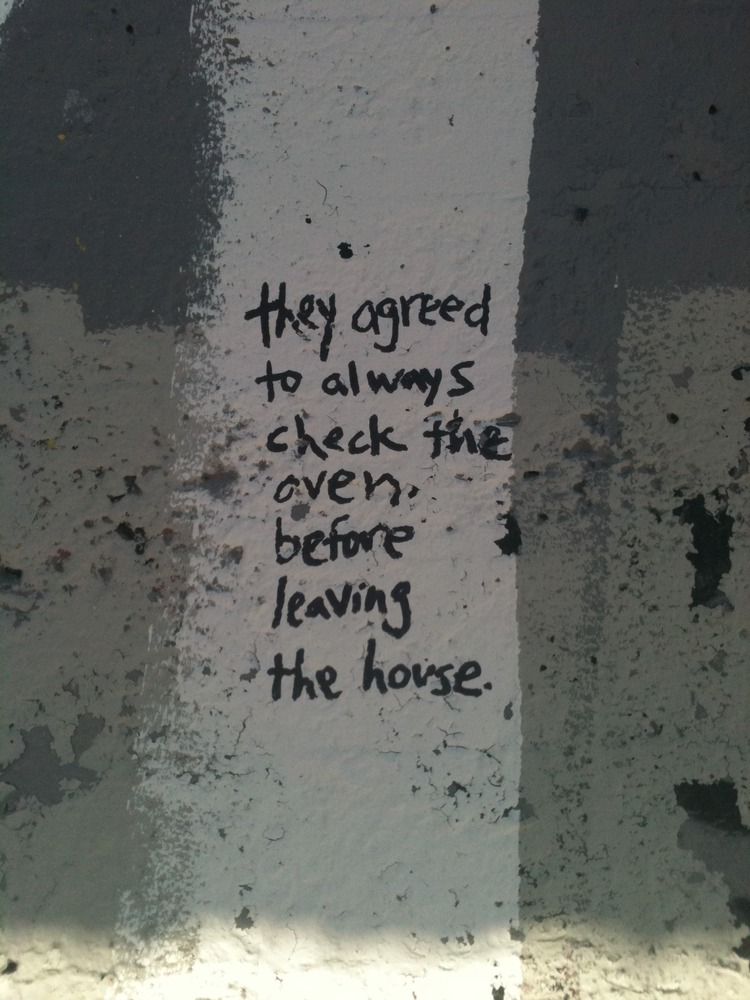 they agreed
to always
check the
oven.
before
leaving
the house.